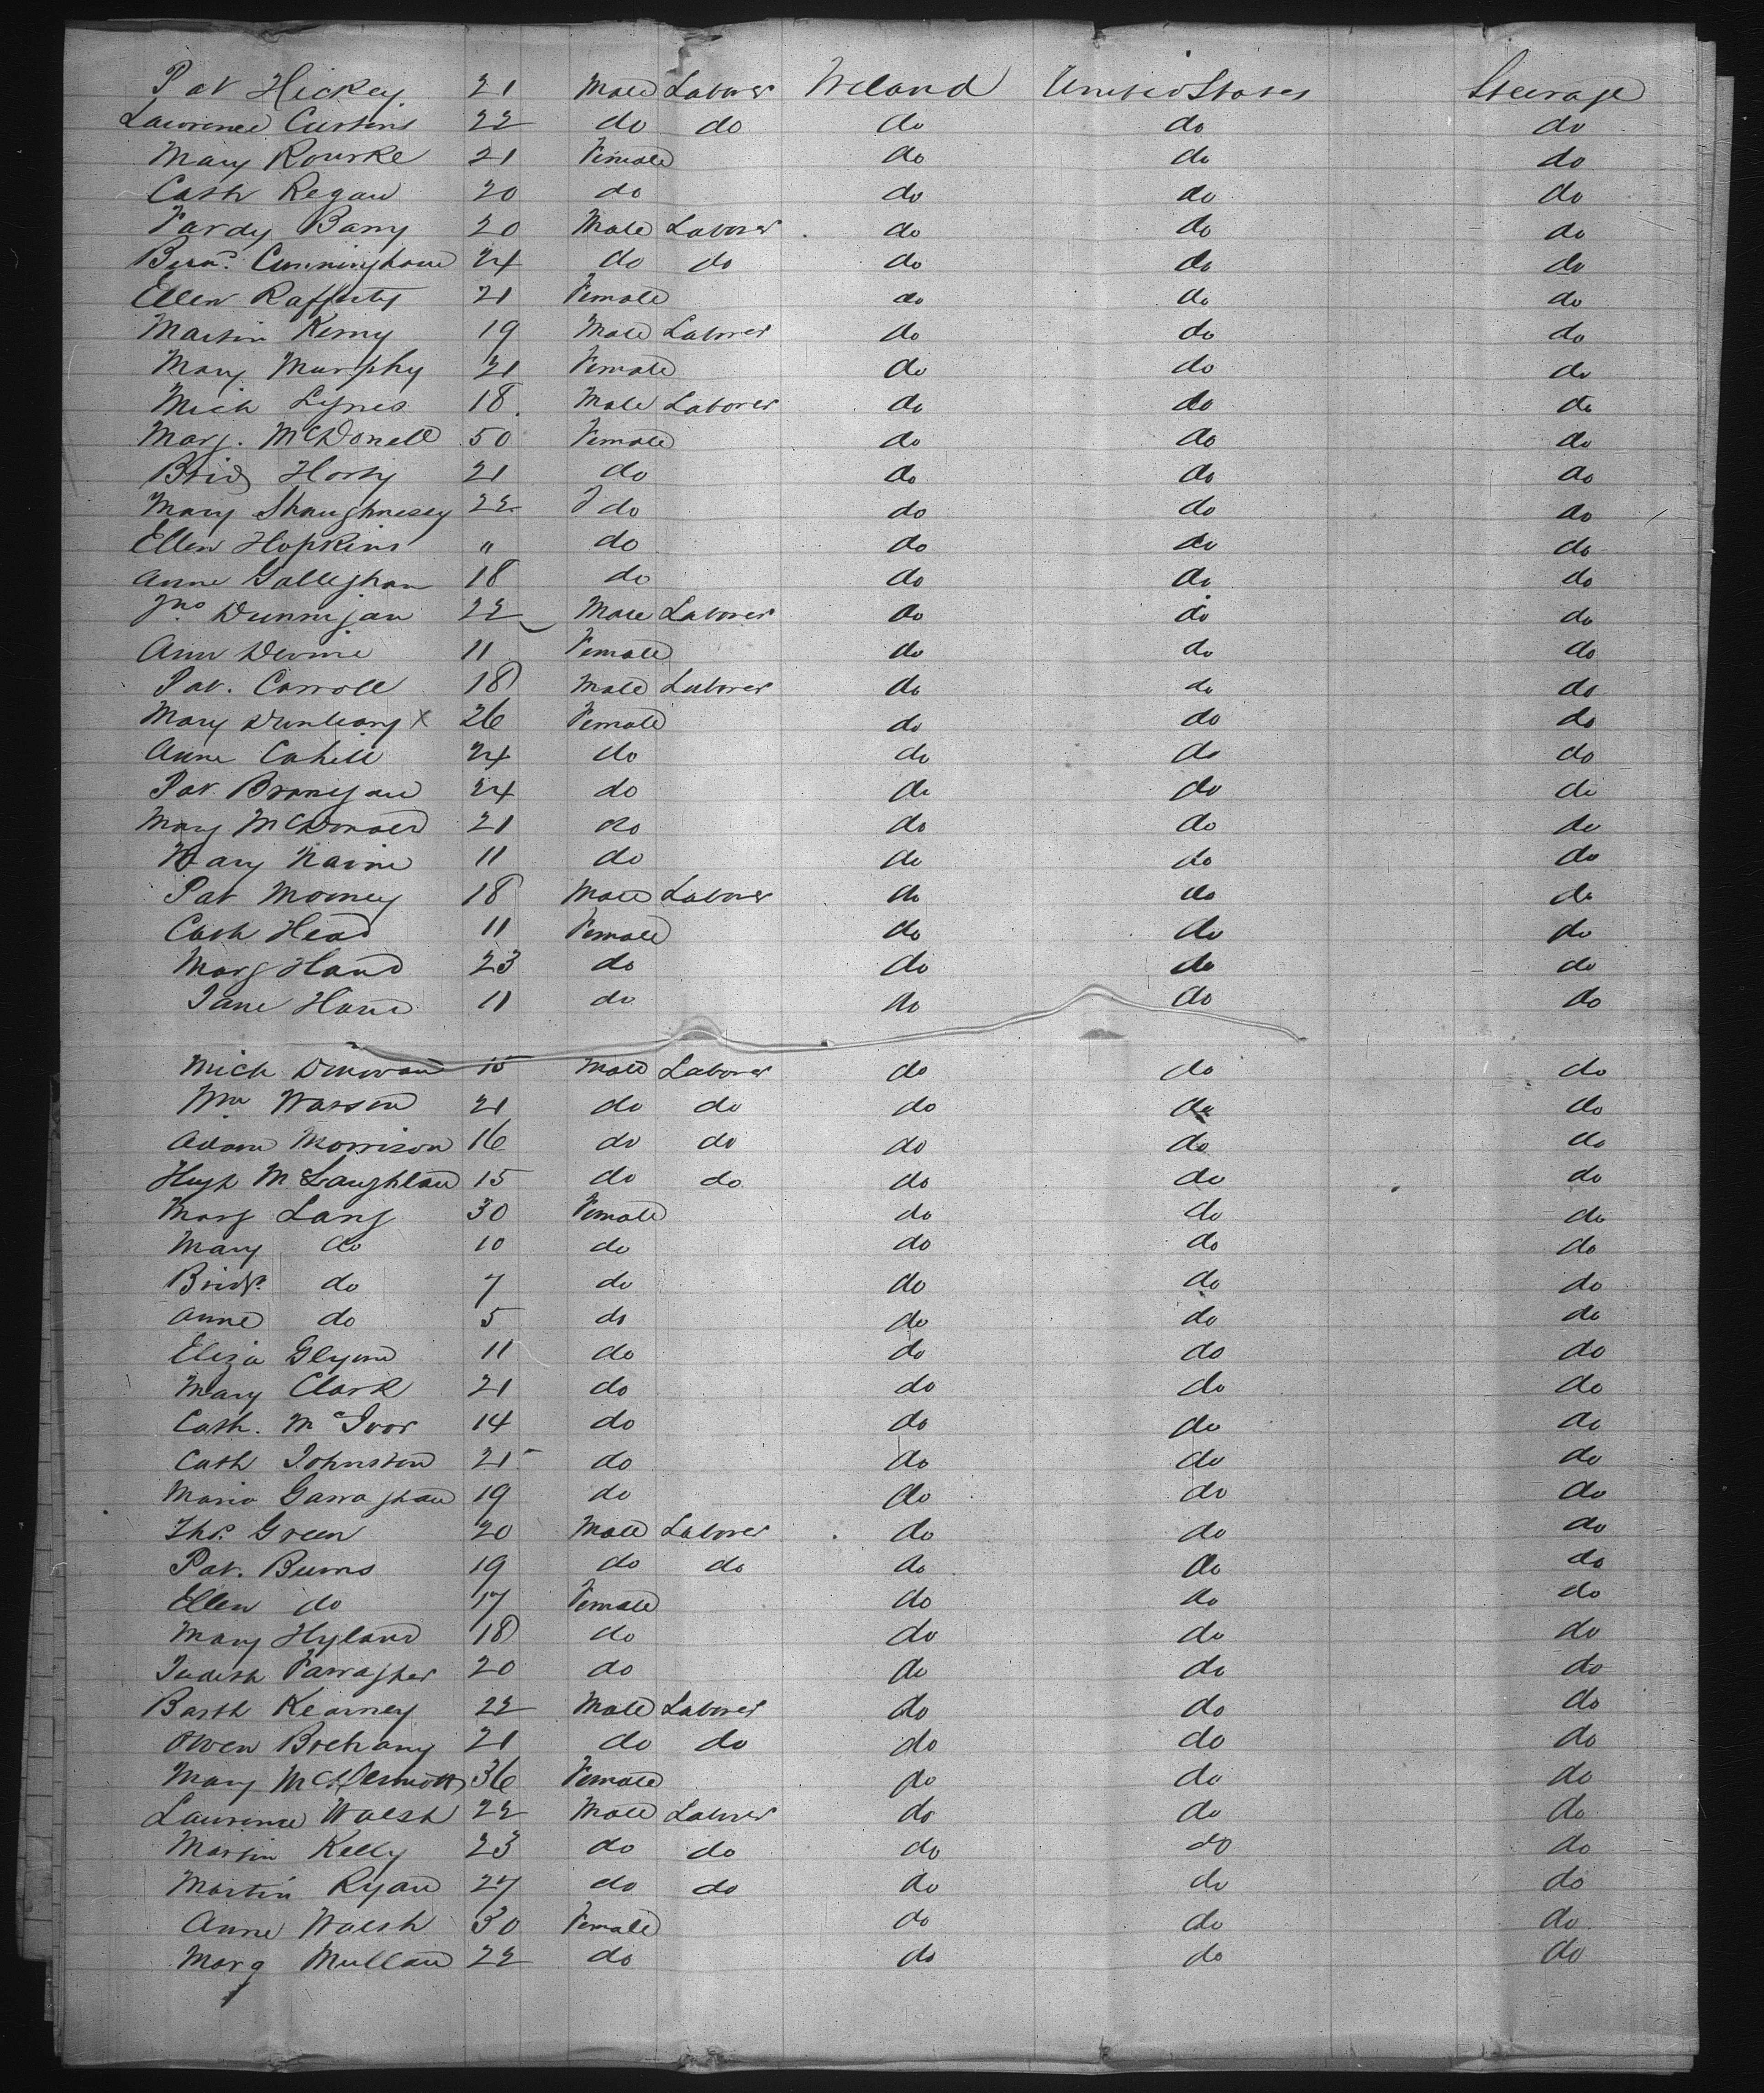 Pat Hickey 21 Male Laborer Ireland United States Steerage
Lawrence 22 do do do do do
Mary Rourke 21 Female do do do
Cath Regan 20 do do do do
Pardy Barry 20 Male Laborer do do do
Bern.d Cunningham 24 do do do do do
Ellen Rafferty 21 Female do do do
Martin Kerny 19 Male Laborer do do do
Mary Murphy 21 Female do do do
Mich Lynes 18 Male Laborer do do do
Marg. McDonell 50 Female do do do
Brid 21 do do do do
Mary Shaughnesey 22 do do do do
Ellen Hopkins " do do do do
Anne Galleghan 18 do do do do
Jno Dunnigan 22 Male Laborer do do do
Ann Devine 11 Female do do do
Pat. Carroll 18 Male Laborer do do do
Mary Dunleavy x 26 Female do do do
Anne Cahill 24 do do do do
Pat Branigan 24 do do do do
Mary McDonald 21 do do do do
Mary Navin 11 do do do do
Pat Mooney 18 Male Laborer do do do
Cath Head 11 Female do do do
Marg Hand 23 do do do do
Jane Hand 11 do do do do
Mich Donovan 15 Male Laborer do do do
Wm Watson 21 do do do do do
Adam Morrison 16 do do do do do
Hugh McLaughlan 15 do do do do do
Marg Lang 30 Female do do do
Mary do 10 do do do do
Bridt do 7 do do do do
Anne do 5 do do do do
Eliza Glynn 11 do do do do
Mary Clark 21 do do do do
Cath. McIvor 14 do do do do
Cath Johnston 21 do do do do
Maria Garraghan 19 do do do do
Thos. Green 20 Male Laborer do do do
Pat. Burns 19 do do do do do
Ellen do 17 Female do do do
Mary Hyland 18 do do do do
Judith Farragher 20 do do do do
Barth Kearney 22 Male Laborer do do do
Owen Brehany 21 do do do do do
Mary McDermott 36 Female do do do
Laurence Walsh 22 Male Laborer do do do
Martin Kelly 23 do do do do do
Martin Ryan 27 do do do do do
Anne Walsh 30 Female do do do
Marg Mullan 22 do do do do